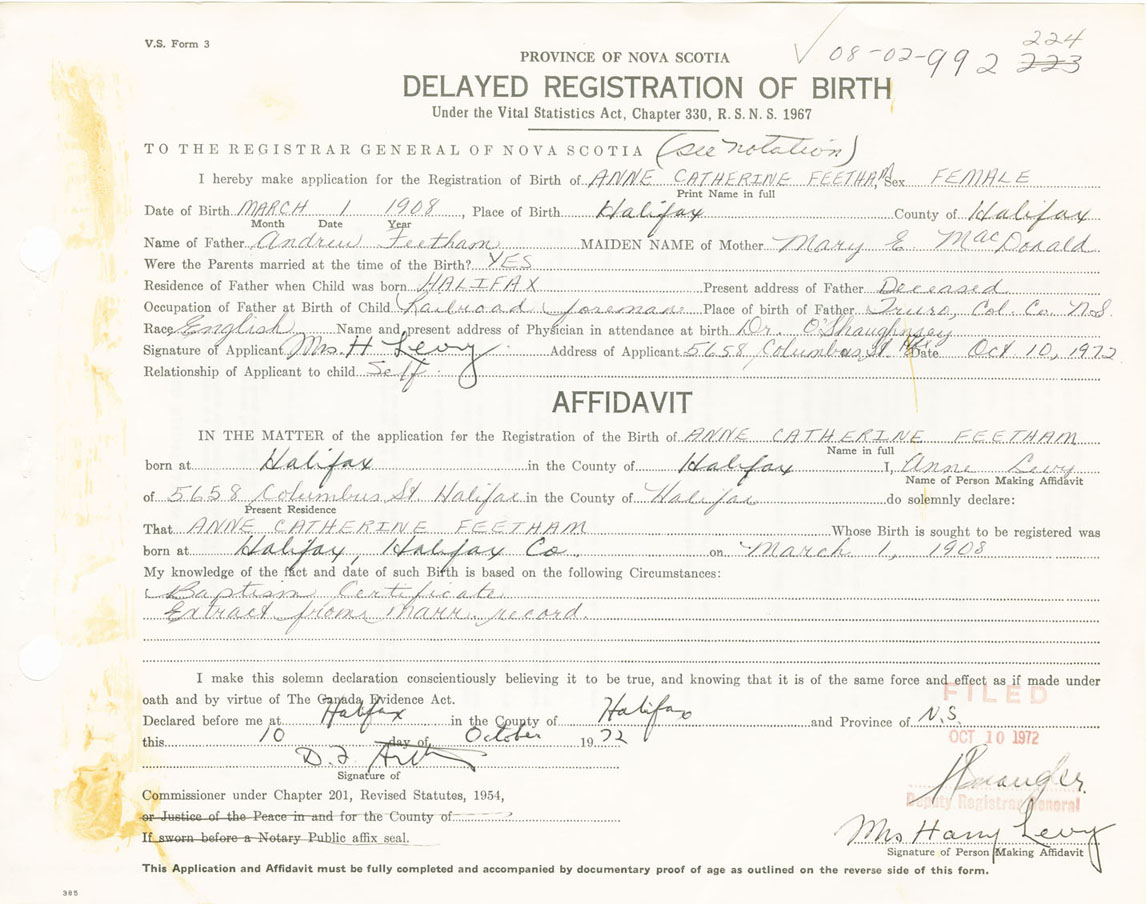 V.S. Form 3
224
08-02-992 223
PROVINCE OF NOVA SCOTIA
DELAYED REGISTRATION OF BIRTH
Under the Vital Statistics Act, Chapter 330, R. S. N. S. 1967
TO THE REGISTRAR GENERAL OF NOVA SCOTIA (see notation)
I hereby make application for the Registration of Birth of ANNE CATHERINE FEETHAM, Sex FEMALE
Print Name in full
Date of Birth MARCH 1 1908, Place of Birth Halifax County of Halifax
Month Date Year
Name of Father Andrew Feetham MAIDEN NAME of Mother Mary E MacDonald
Were the Parents married at the time of the Birth? YES
Residence of Father when Child was born HALIFAX Present address of Father Deceased
Occupation of Father at Birth of Child Railroad foreman Place of birth of Father Truro, Col. Co. N.S.
Race English Name and present address of Physician in attendance at birth Dr. O'Shaughnsey
Signature of Applicant Mrs. H Levy Address of Applicant 5658 Columbus St Hfx Date Oct 10, 1972
Relationship of Applicant to child Self
AFFIDAVIT
IN THE MATTER of the application for the Registration of the Birth of ANNE CATHERINE FEETHAM
Name in full
born at Halifax in the County of Halifax I, Anne Levy
Name of Person Making Affidavit
of 5658 Columbus St Halifax in the County of Halifax do solemnly declare:
Present Residence
That ANNE CATHERINE FEETHAM Whose Birth is sought to be registered was
born at Halifax, Halifax Co. on March 1, 1908
My knowledge of the fact and date of such Birth is based on the following Circumstances:
Baptism Certificate
Extract from marr. record.
I make this solemn declaration conscientiously believing it to be true, and knowing that it is of the same force and effect as if made under
oath and by virtue of The Canada Evidence Act.
FILED
Declared before me at Halifax in the County of Halifax and Province of N.S.
this 10 day of October 1972
OCT 10 1972
D. F.
Signature of
Commissioner under Chapter 201, Revised Statutes, 1954,
Deputy Registrar General
or Justice of the Peace in and for the County of
If sworn before a Notary Public affix seal.
Mrs Harry Levy
Signature of Person Making Affidavit
This Application and Affidavit must be fully completed and accompanied by documentary proof of age as outlined on the reverse side of this form.
385